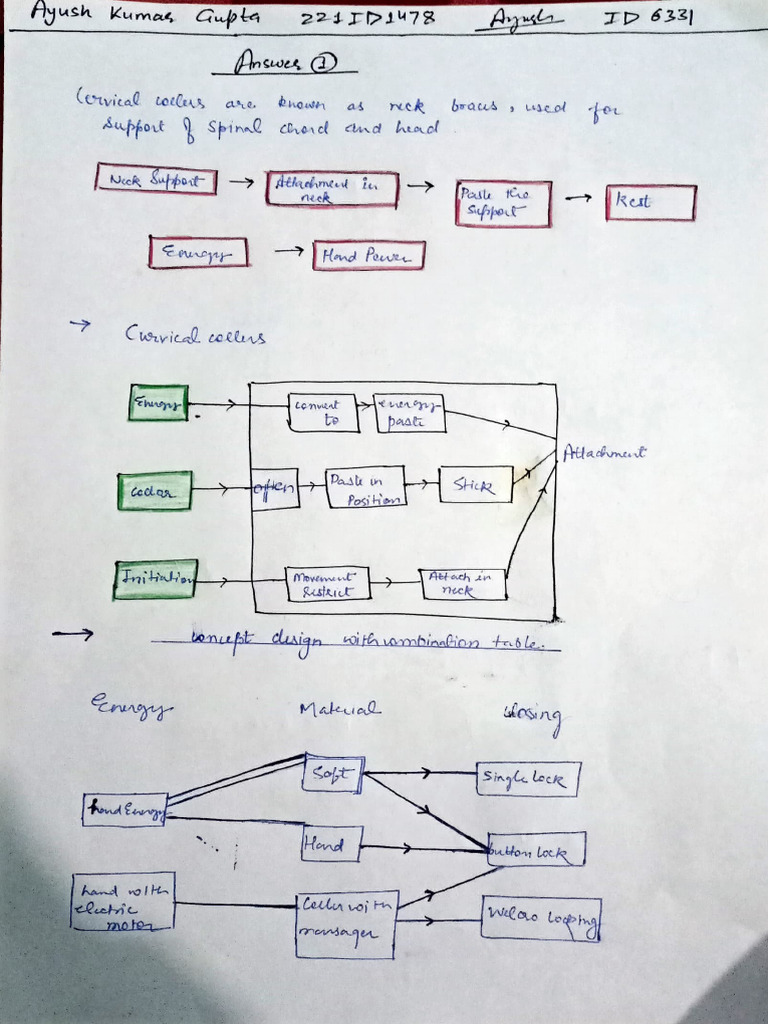 Ayush Kumar Gupta 221ID1478 Ayush ID 6331
Answer ①
Cervical collers are known as neck braces, used for
Support of Spinal chord and head
Neck Support → Attachment in neck → Paste the Support → Rest
Energy → Hand Power
→ Curvical collers
Energy convert to energy paste
Attachment
collar open Paste in Position Stick
Initiation Movement Restrict Attach in neck
→ concept design with combination table.
Energy Material closing
Soft Single lock
hand Energy
Hand button lock
hand with electric motor Coller with massager Velcro looping